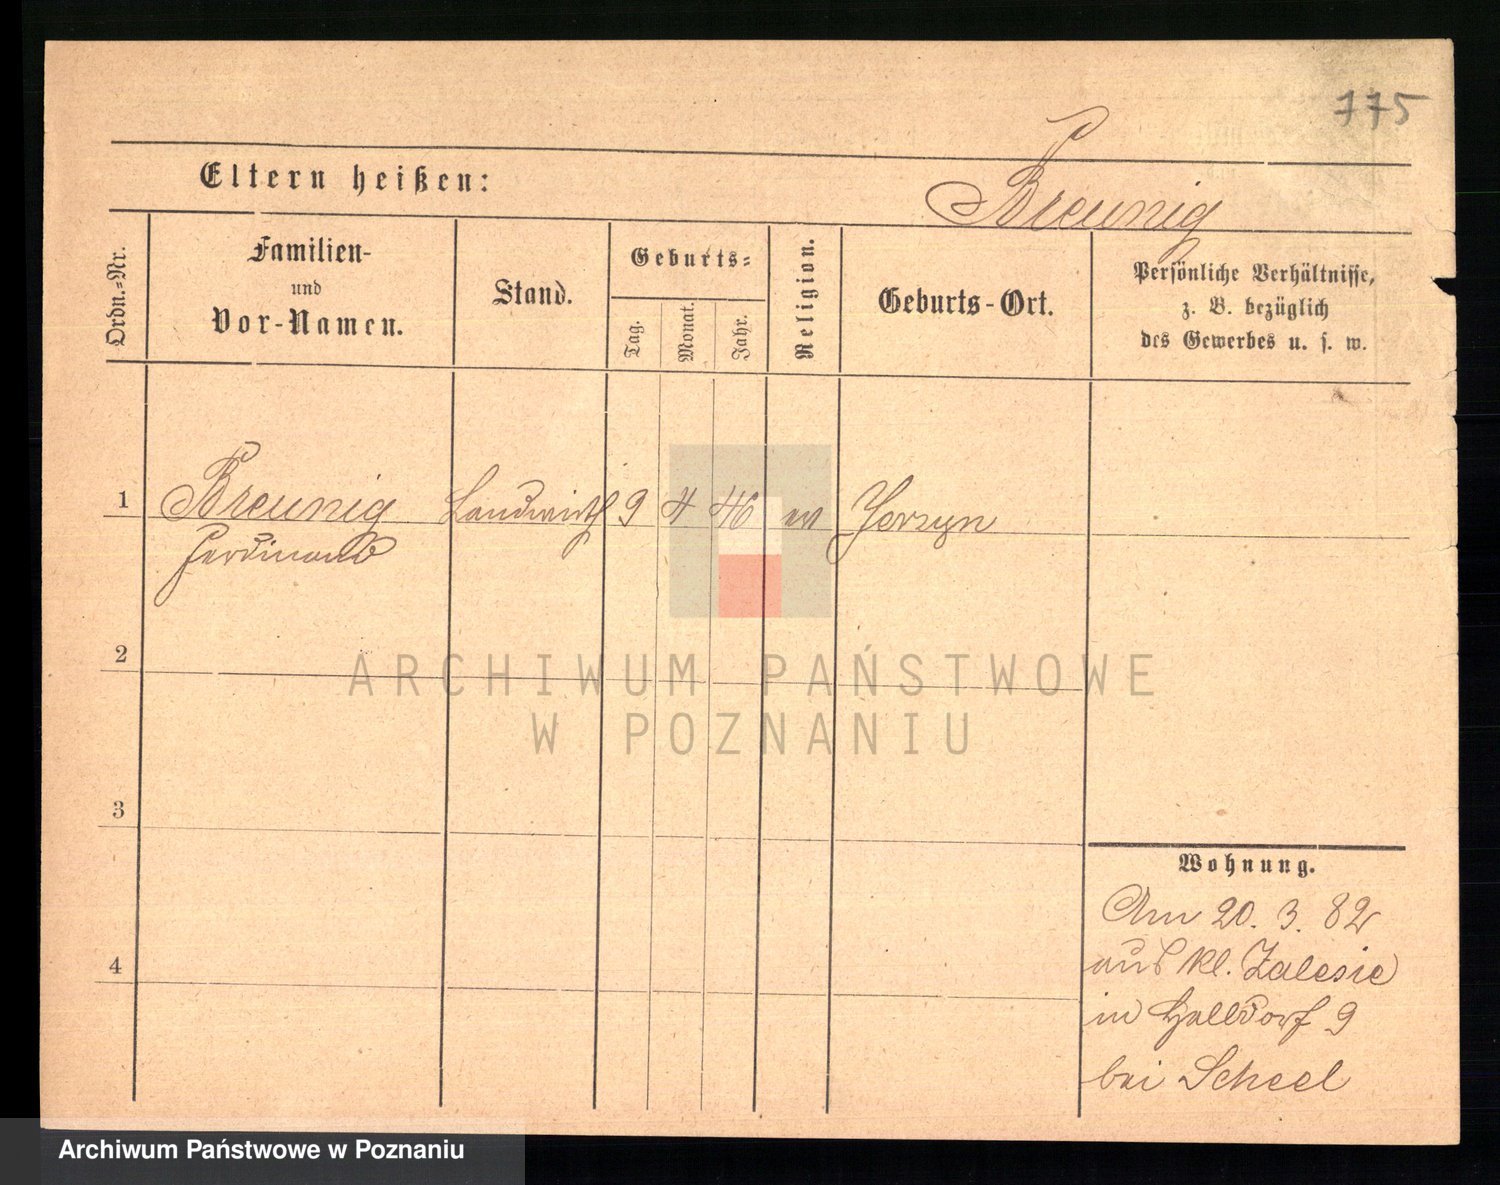 775
Eltern heißen:
Breunig
Ordn.=Nr.
Familien-
und
Vor-Namen.
Stand.
Geburts=
Tag.
Monat.
Jahr.
Religion.
Geburts-Ort.
Persönliche Verhältnisse,
z. B. bezüglich
des Gewerbes u. s. w.
1 Breunig Landwirth 9 4 46 ev
Ferdinand
2
ARCHIWUM PAŃSTWOWE
W POZNANIU
3
Wohnung.
Am 20. 3. 82
aus kl. Zalesie
4
in Halldorf 9
bei Scheel
Archiwum Państwowe w Poznaniu